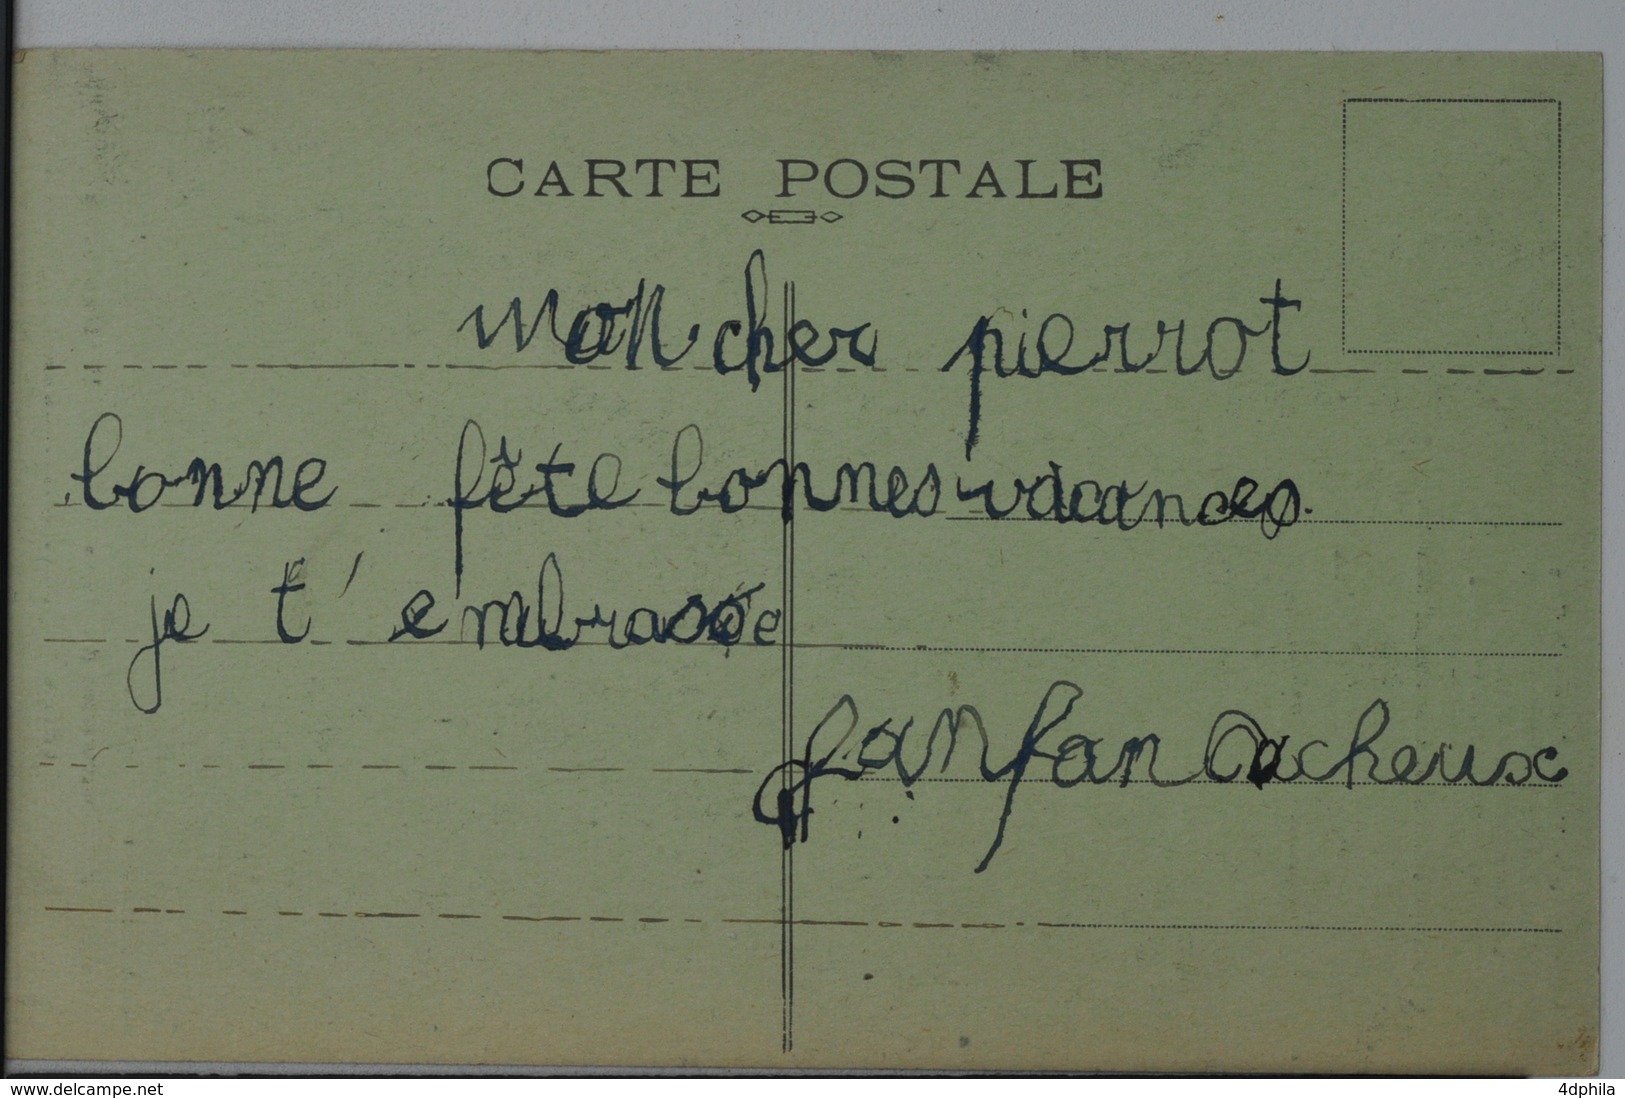 CARTE POSTALE
mon cher pierrot
bonne fête bonnes vacances.
je t'embrasse
fanfan Cacheux
www.delcampe.net
4dphila